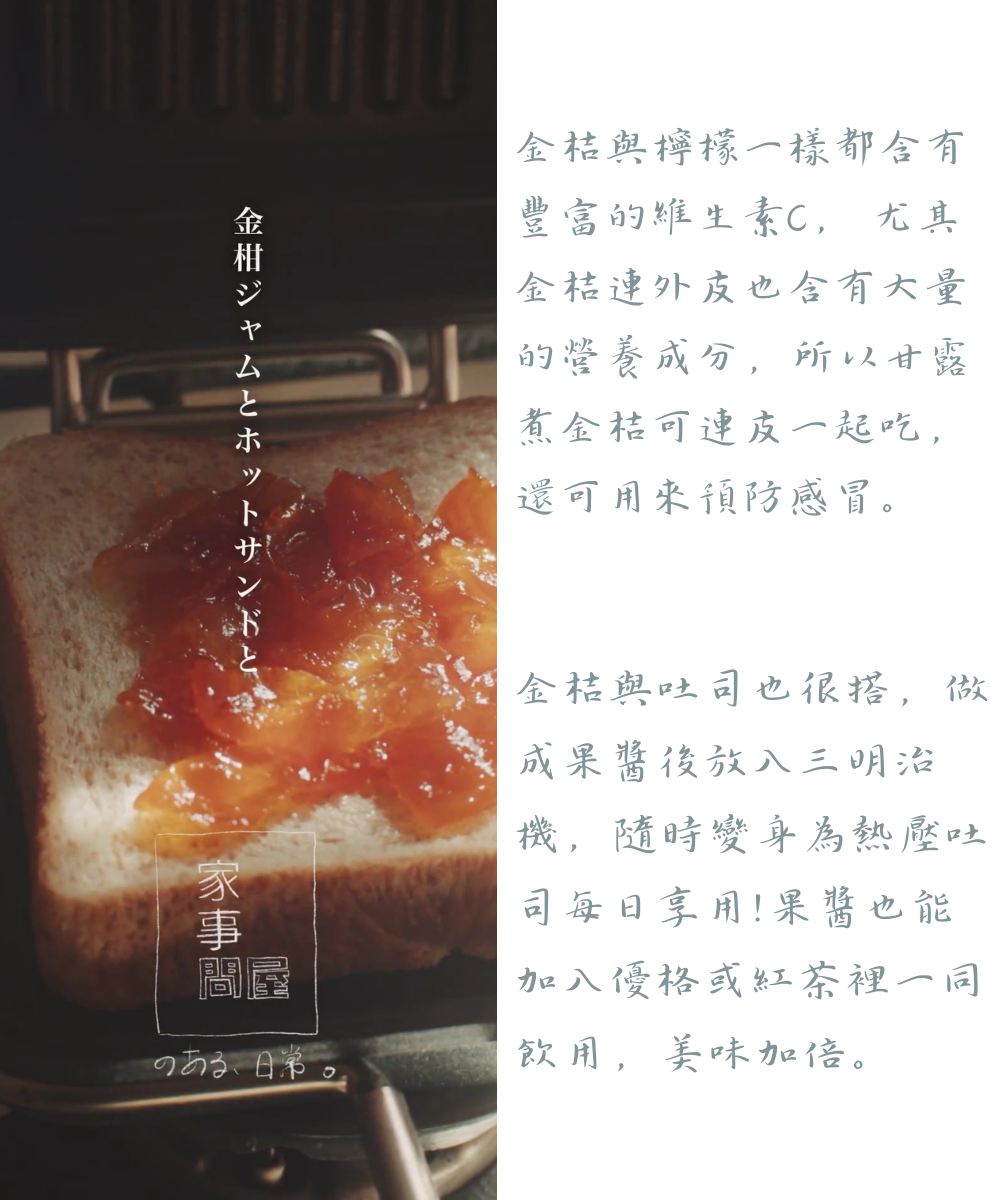 金柑ジャムとホットサンドと
家
事
問屋
のある、日常。
金桔與檸檬一樣都含有
豐富的維生素C， 尤其
金桔連外皮也含有大量
的營養成分，所以甘露
煮金桔可連皮一起吃，
還可用來預防感冒。
金桔與吐司也很搭，做
成果醬後放入三明治
機，隨時變身為熱壓吐
司每日享用!果醬也能
加入優格或紅茶裡一同
飲用，美味加倍。